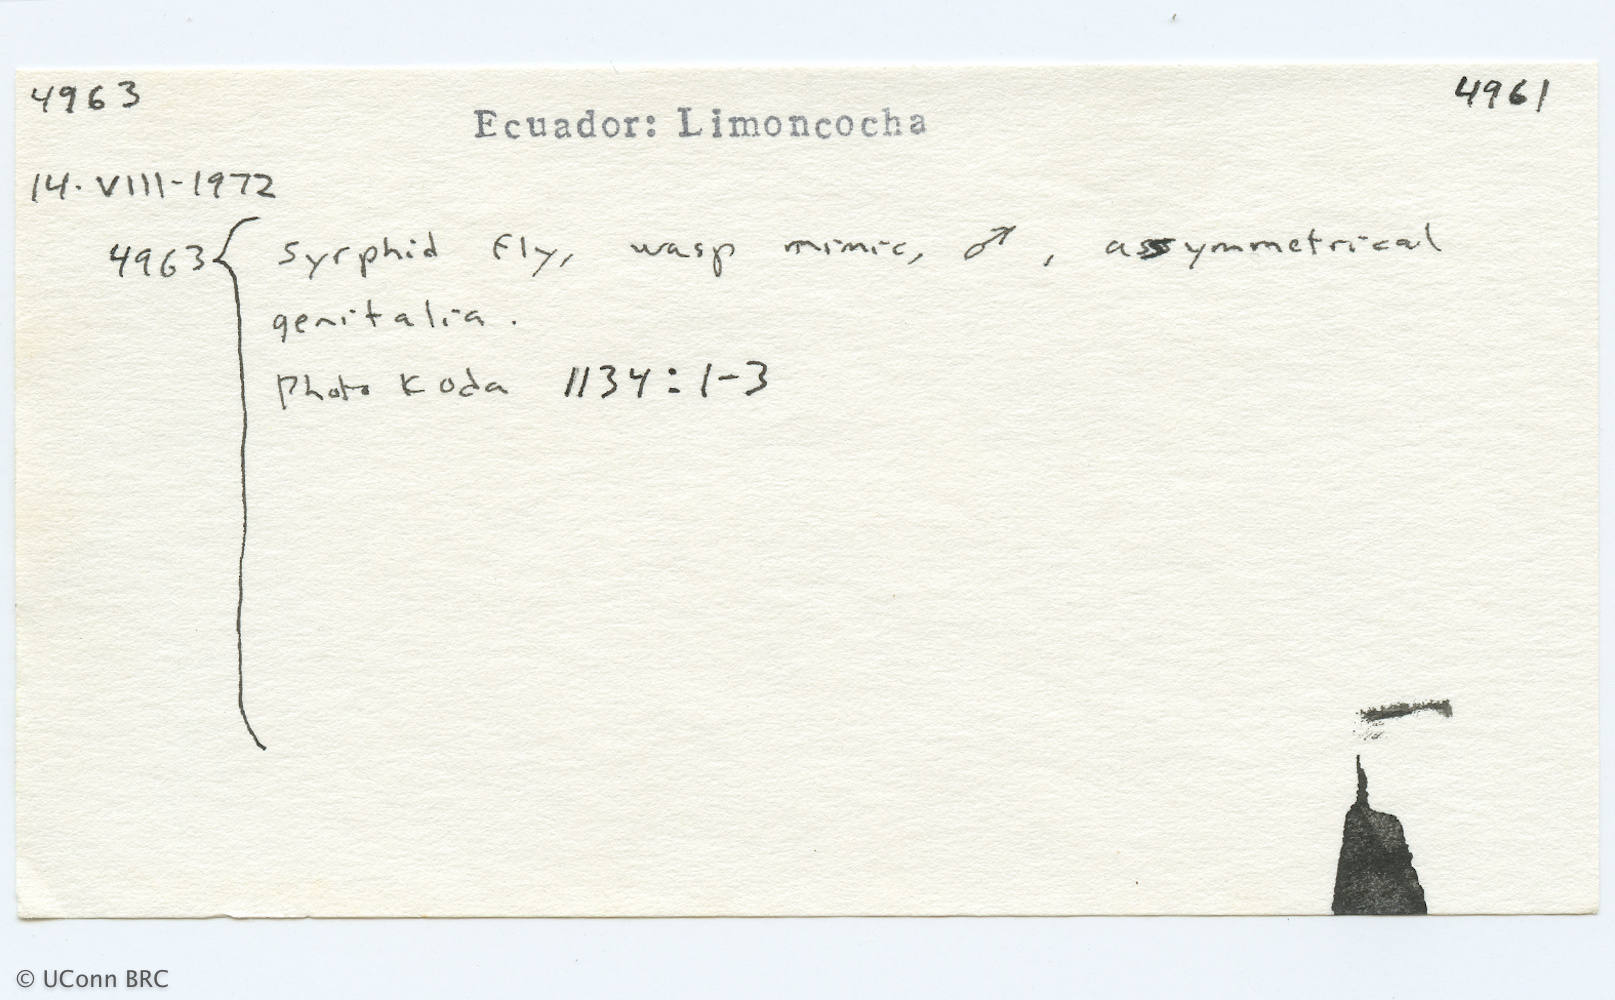 4963 4961
Ecuador: Limoncocha
14. VIII-1972
4963 { Syrphid Fly, wasp mimic, ♂, assymmetrical
genitalia.
Photo Koda 1134:1-3
© UConn BRC